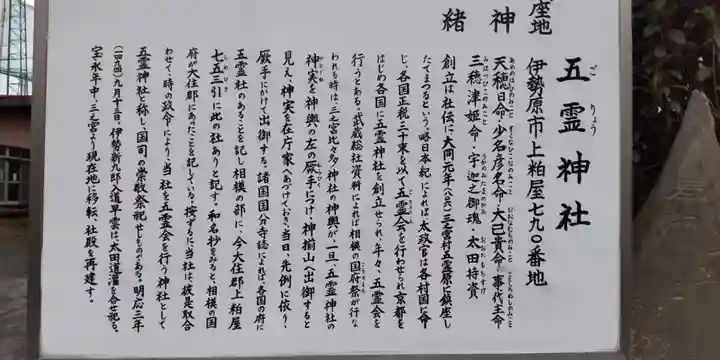 五霊神社
ごりょう
座地　伊勢原市上粕屋七九〇番地
神　天穂日命・少名彦名命・大己貴命・事代主命
三穂津姫命・宇迦之御魂・太田持資
緒　創立は社伝に大同元年(八〇六)三之宮村五霊原に鎮座し
たてまつるという。略日本紀によれば太政官は各村国に命
じ、各国正税三十束を以て五霊会を行わせられ京都を
はじめ各国に五霊神社を創立せられ、年々、五霊会を
行うとある。武蔵総社資料によれば相模の国府祭が行な
われる時は、三之宮比々多神社の神輿が、一旦、五霊神社の
神実を神輿の左の蕨手につけ、神揃山へ出御すると
見え、神実を在片家へあづけておき、当日、先例に依り、
蕨手にかけて出御する。諸国国分寺誌によれば、各国の府に
五霊社のあることを記し相模の部に、今大住郡上粕屋
七五三引に此の社ありと記す。和名抄をみると、相模の国
府が大住郡にあったことを記している。按ずるに当社は、彼是取合
わせて、時の政令により、当社を五霊会を行う神社として
五霊神社と称し、国司の崇敬祭祀せしものである。明応三年
(一四九四)九月十三日、伊勢新九郎入道早雲は太田道灌を合せ祀る。
宝永年中、三之宮より現在地に移転、社殿を再建す。